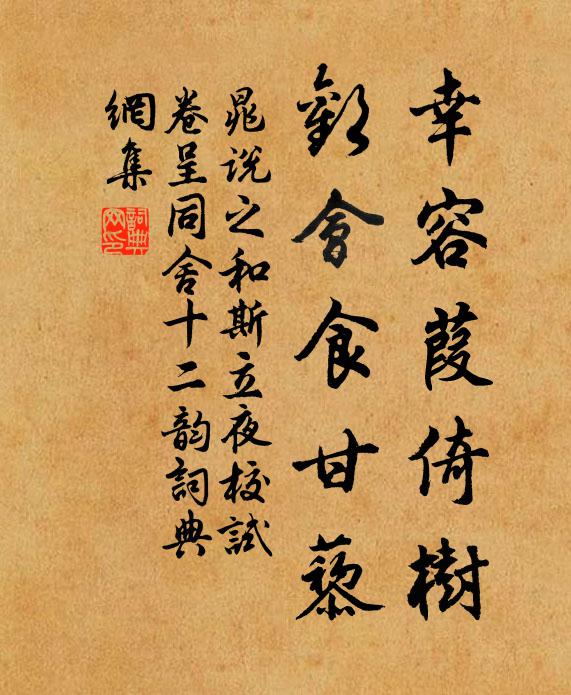 幸容葭倚樹
歡會食甘藜
晁說之和斯立夜校試
卷呈同舍十二韵詞典
網集
詞典网印